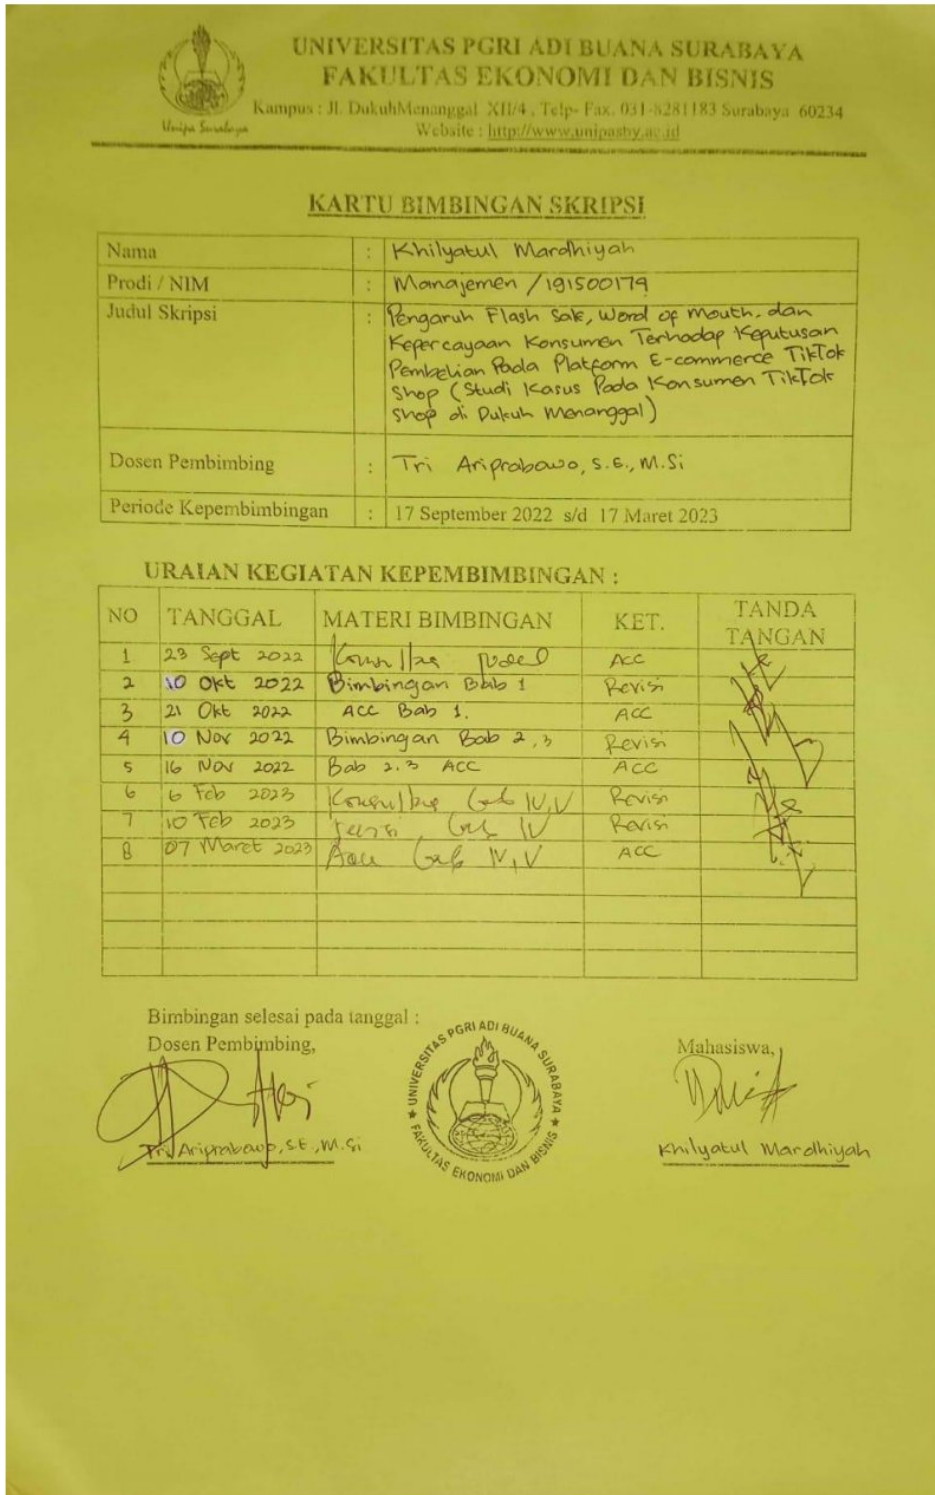 UNIVERSITAS PGRI ADI BUANA SURABAYA
FAKULTAS EKONOMI DAN BISNIS
Kampus : Jl. DukuhMenanggal XII/4 , Telp- Fax. 031-8281183 Surabaya 60234
Website : http://www.unipasby.ac.id
Unipa Surabaya
KARTU BIMBINGAN SKRIPSI
Nama : Khilyatul Mardhiyah
Prodi / NIM : Manajemen / 191500179
Judul Skripsi : Pengaruh Flash Sale, Word of Mouth, dan
Kepercayaan Konsumen Terhadap Keputusan
Pembelian Pada Platform E-commerce TikTok
Shop (Studi Kasus Pada Konsumen TikTok
Shop di Dukuh Menanggal)
Dosen Pembimbing : Tri Ariprabowo, S.E., M.Si
Periode Kepembimbingan : 17 September 2022 s/d 17 Maret 2023
URAIAN KEGIATAN KEPEMBIMBINGAN :
NO TANGGAL MATERI BIMBINGAN KET. TANDA TANGAN
1 23 Sept 2022 ACC
2 10 Okt 2022 Bimbingan Bab 1 Revisi
3 21 Okt 2022 ACC Bab 1. ACC
4 10 Nov 2022 Bimbingan Bab 2,3 Revisi
5 16 Nov 2022 Bab 2.3 ACC ACC
6 6 Feb 2023 IV, V Revisi
7 10 Feb 2023 IV Revisi
8 07 Maret 2023 Acc IV, V ACC
Bimbingan selesai pada tanggal :
Dosen Pembimbing,
Mahasiswa,
UNIVERSITAS PGRI ADI BUANA SURABAYA
FAKULTAS EKONOMI DAN BISNIS
Tri Ariprabowo, SE., M.Si
Khilyatul Mardhiyah